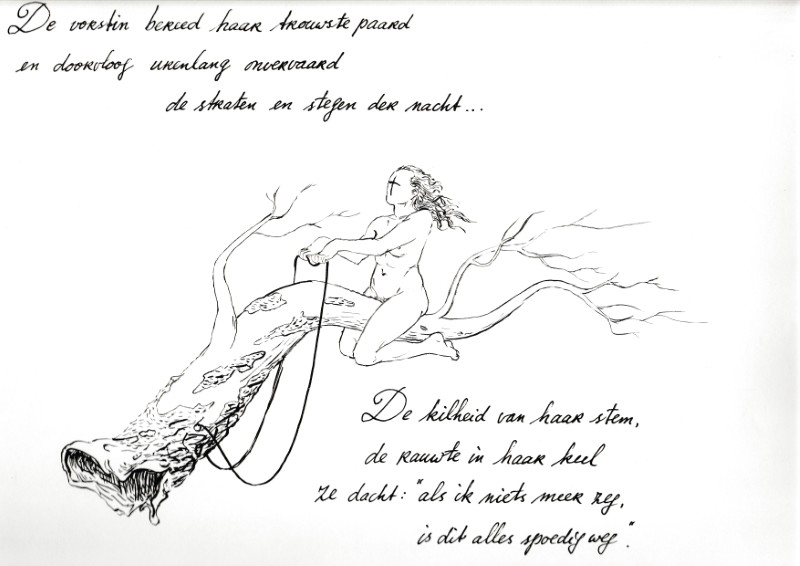 De vorstin bereed haar trouwste paard
en doorvloog urenlang onvervaard
de straten en stegen der nacht...
De kilheid van haar stem,
de rauwte in haar keel
ze dacht: "als ik niets meer zeg,
is dit alles spoedig weg".